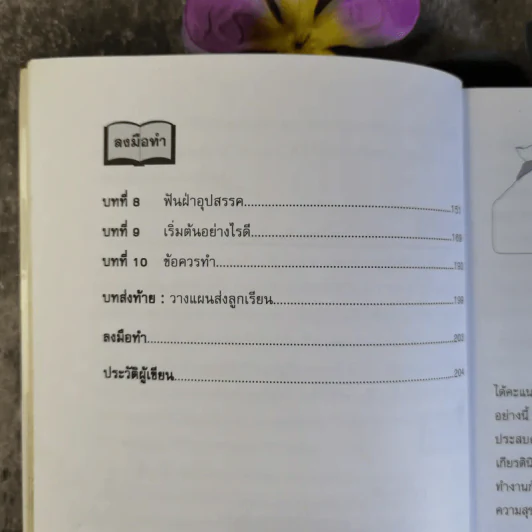 ลงมือทำ
บทที่ 8 ฟันฝ่าอุปสรรค
บทที่ 9 เริ่มต้นอย่างไรดี
บทที่ 10 ข้อควรทำ
บทส่งท้าย : วางแผนส่งลูกเรียน 196
ลงมือทำ 203
ประวัติผู้เขียน 204
ได้คะแน
อย่างนี้
ประสบ
เกียรตินิ
ทำงาน
ความสุ